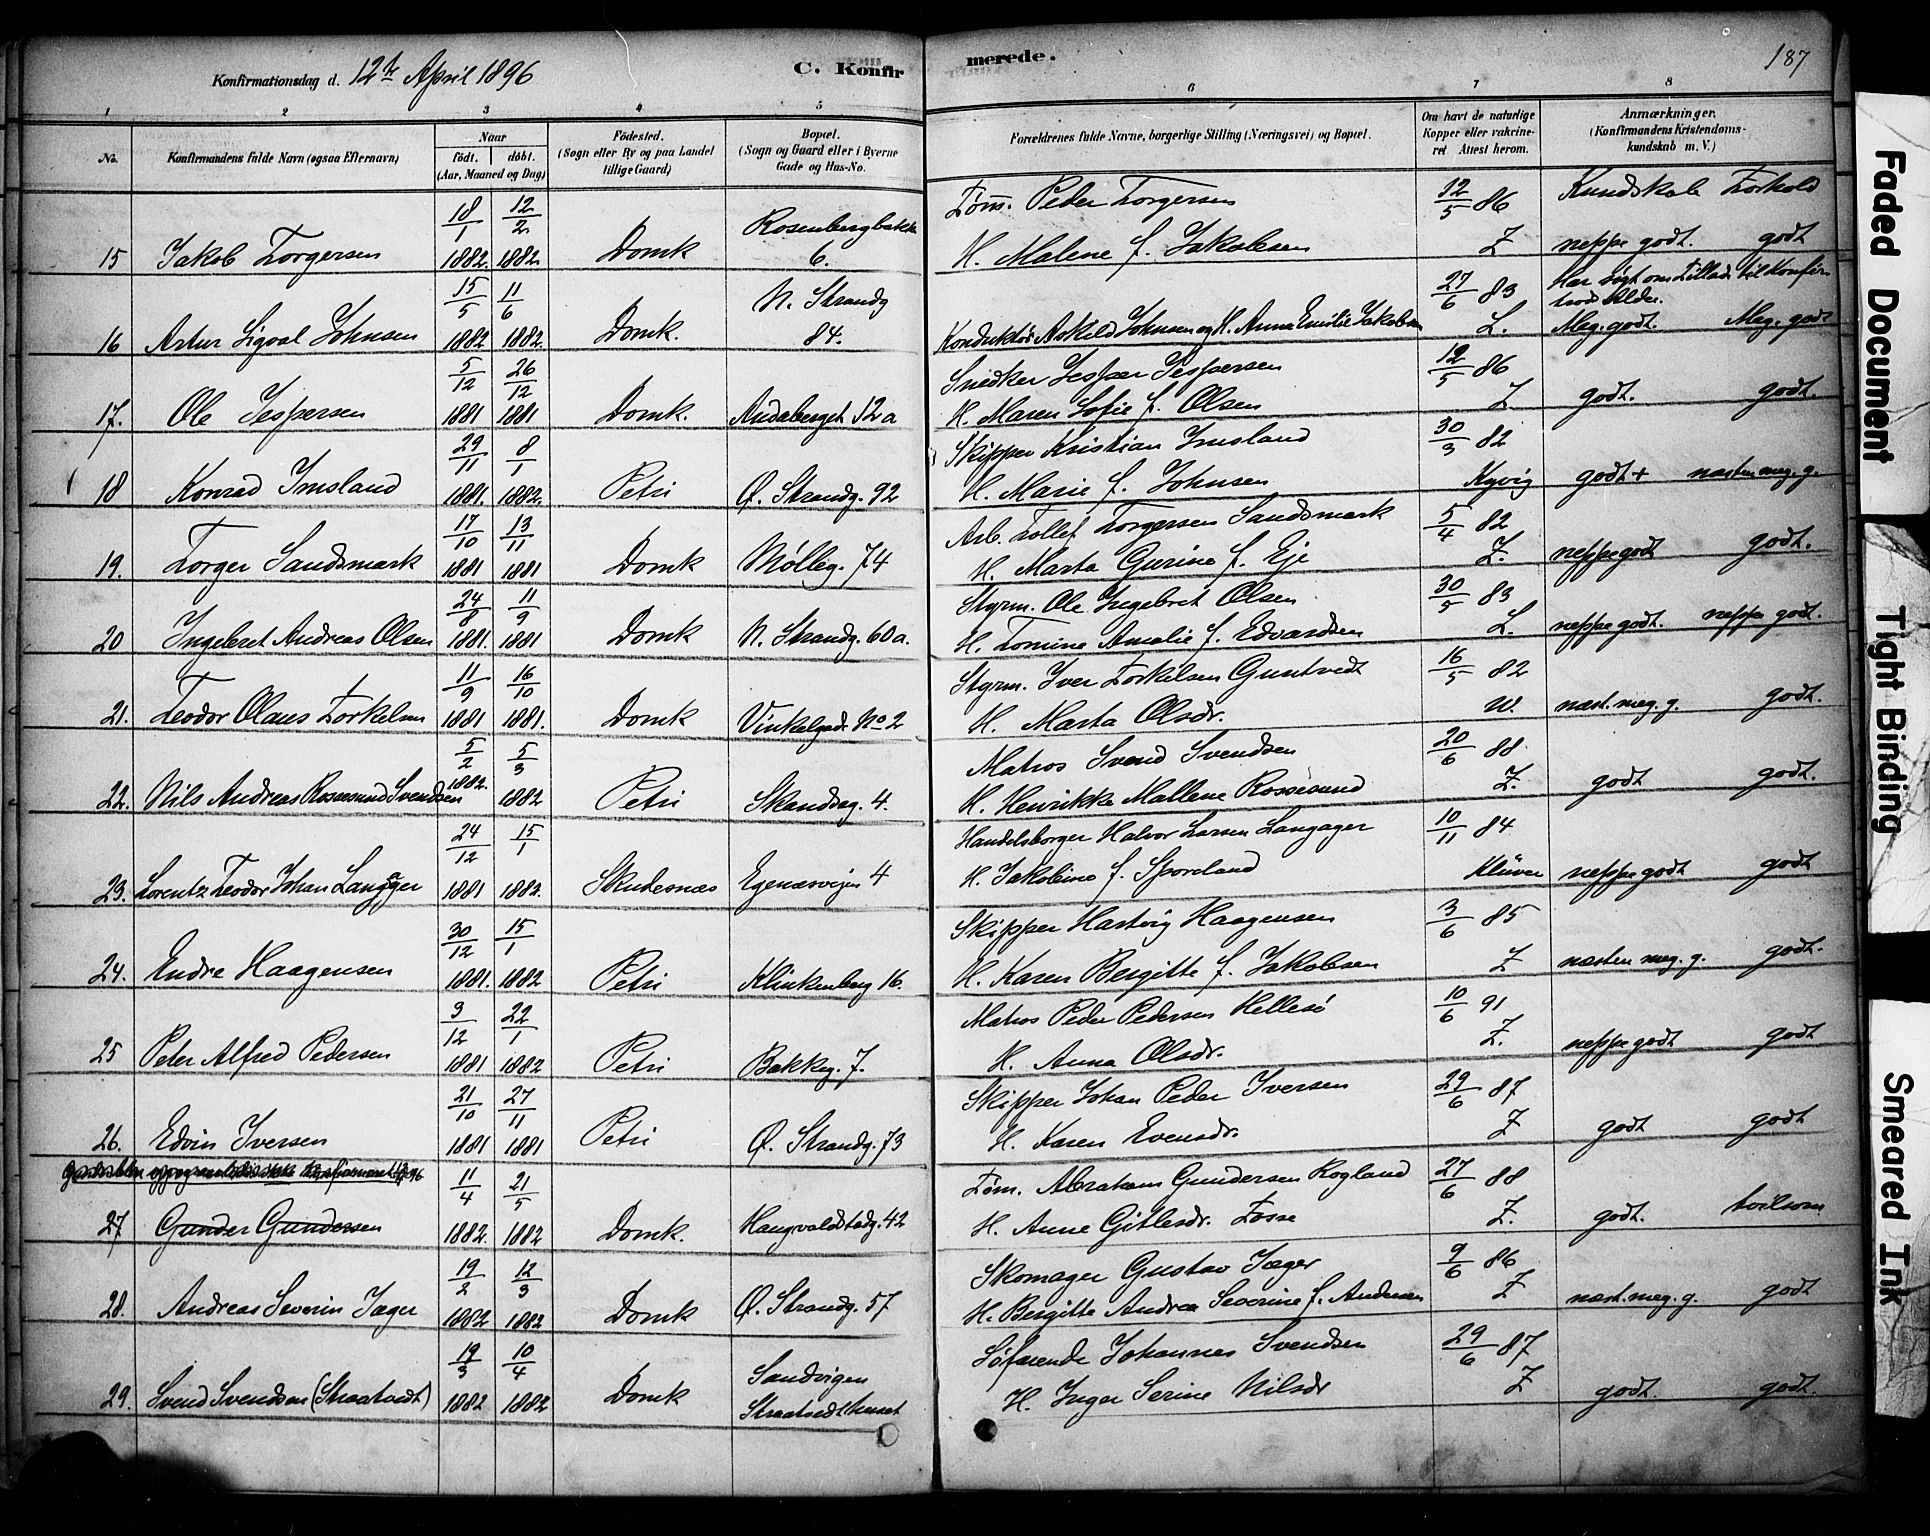 Konfirmationsdag d. 12te April 1896 C. Konfirmerede. 187
1 2 3 4 5 6 7 8
No. Konfirmandens fulde Navn (ogsaa Efternavn) Naar født. døbt. (Aar, Maaned og Dag) Fødested. (Sogn eller By og paa Landet tillige Gaard) Bopæl. (Sogn og Gaard eller i Byerne Gade og Hus-No. Forældrenes fulde Navne, borgerlige Stilling (Næringsvei) og Bopæl. Om havt de naturlige Kopper eller vakcineret Attest herom. Anmærkninger. (Konfirmandens Kristendomskundskab m. V.)
18/1 12/2 Rosenbergbakke Tøm. Peder Torgersen 12/5 86 Kundskab Forhold
15 Jakob Torgersen 1882. 1882 Domk 6. H. Malene f. Jakobsen Z neppe godt. godt
15/5 11/6 N. Strandg 27/6 83 Har søgt om Tillad. til Konfir
16 Artur Sigval Johnsen 1882 1882 Domk. 84. Konduktør Askild Johnsen og H. Anna Emilie Jakobsen L. Meg. godt. Meg. godt
5/12 26/12 Snedker Jesper Jespersen 12/5 86
17. Ole Jespersen 1881 1881 Domk. Andaberget 12a H. Maren Sofie f. Olsen Z godt. godt.
29/11 8/1 Skipper Kristian Imsland 30/3 82
18 Konrad Imsland 1881. 1882. Petri Ø. Strandg. 92 H. Marie f. Johnsen Kyvig godt+ næsten meg. g.
17/10 13/11 Arb. Tollef Torgersen Sandsmark 5/4 82
19. Torger Sandsmark 1881 1881 Domk Mølleg. 74 H. Marta Gurine f. Eje Z. neppe godt godt.
24/8 11/9 Styrm. Ole Ingebret Olsen 30/5 83
20 Ingebret Andreas Olsen 1881. 1881 Domk N. Strandg. 60a. H. Tomine Amalie f. Edvardsen L. neppe godt. neppe godt.
11/9 16/10 Styrm. Iver Torkelsen Guntvedt 16/5 82
21. Teodor Olaus Torkelsen 1881 1881. Domk Vinkelgade No 2 H. Marta Olsdr. W. næst. meg. g. godt.
5/2 5/3 Matros Svend Svendsen 20/6 88
22. Nils Andreas Rossesund Svendsen 1882. 1882 Petri Skandseg. 4. H. Henrikke Mallene Rossesund Z. godt godt.
24/12 15/1 Handelsborger Halvor Larsen Langager 10/11 84
23. Lorentz Teodor Johan Langager 1881 1882. Skudesnæs Egenæsveien 4 H. Jakobine f. Sporeland Klüver neppe godt godt
30/12 15/1 Skipper Hartvig Haagensen 3/6 85
24. Endre Haagensen 1881. 1882 Petri Klinkenberg 16. H. Karen Bergitte f. Jakobsen Z næsten meg. g. godt.
3/12 22/1 Matros Peder Pedersen Hellesö 10/6 91
25 Peter Alfred Pedersen 1881 1882 Petri Bakkeg. 7. H. Anna Olsdr. Z. neppe godt godt
21/10 27/11 Skipper Johan Peder Iversen 29/6 87
26. Edvin Iversen 1881 1881 Petri Ø. Strandg. 73 H. Karen Evensdr. Z godt godt
11/4 21/5 Tøm. Abraham Gundersen Rogland 27/6 88
27 Gunder Gundersen 1882. 1882 Domk. Haugvaldstadg. 42 H. Anne Gitlesdr. Fosse Z. godt. tvilsom
19/2 12/3 Skomager Gustav Jæger 9/6 86
28. Andreas Severin Jæger 1882 1882 Domk Ø. Strandg. 57 H. Bergitte Andrea Severine f. Andersen Z næst. meg. g. godt
19/3 10/4 Sandvigen Søfarende Johannes Svendsen 29/6 87
29. Svend Svendsen (Straatvedt) 1882 1882 Domk Straatvedthuset H. Inger Serine Nilsdr Z godt. godt.
Faded Document
Tight Binding
Smeared Ink